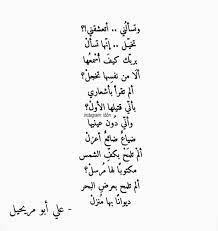 وتسألُني .. أتعشقني؟!
تخيّل .. إنّها تسألْ
بربّك كيفَ أُسْمعُها
ألا من نفسِها تخجلْ؟
ألم تقرأ بأشعاري
بأنّي قتيلها الأولْ؟
instagram
وأنّي دُون عينيها
ضياعٌ ضائعٌ أعزلْ
ألمْ تلمَحْ بكفّ الشمس
مكتوبًا لها مُرسلْ؟
ألم تلمح بعرض البحر
ديوانًا بها مُنزلْ
- علي أبو مريحيل